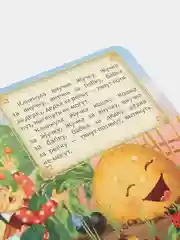 Кликнула внучка Жучку. Жучка
за внучку, внучка за бабку, бабка
за дедку, дедка за репку — тянут-потянут,
вытянуть не могут.
Кликнула Жучка кошку. Кошка
за Жучку, Жучка за внучку, внучка
за бабку, бабка за дедку, дедка
за репку — тянут-потянут, вытянуть
не могут.